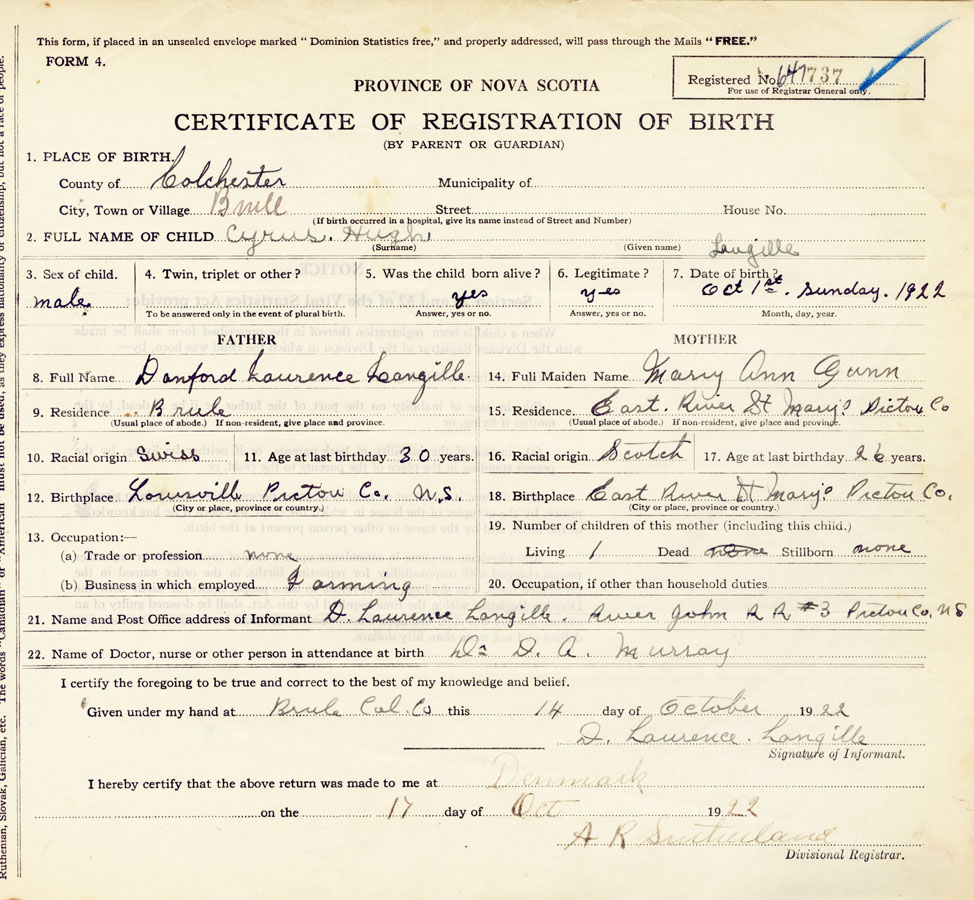 This form, if placed in an unsealed envelope marked "Dominion Statistics free," and properly addressed, will pass through the Mails "FREE."
FORM 4.
Registered No. 647737
For use of Registrar General only.
PROVINCE OF NOVA SCOTIA
CERTIFICATE OF REGISTRATION OF BIRTH
(BY PARENT OR GUARDIAN)
1. PLACE OF BIRTH.
County of Colchester Municipality of
City, Town or Village Brule Street House No.
(If birth occurred in a hospital, give its name instead of Street and Number)
2. FULL NAME OF CHILD Cyrus. Hugh Langille
(Surname) (Given name)
3. Sex of child. 4. Twin, triplet or other? 5. Was the child born alive? 6. Legitimate? 7. Date of birth?
male. yes yes Oct 1st. Sunday. 1922
To be answered only in the event of plural birth. Answer, yes or no. Answer, yes or no. Month, day, year.
FATHER MOTHER
8. Full Name Danford Laurence Langille. 14. Full Maiden Name Mary Ann Gunn
9. Residence Brule 15. Residence. East. River St Marys Pictou Co
(Usual place of abode.) If non-resident, give place and province. (Usual place of abode.) If non-resident, give place and province.
10. Racial origin Swiss 11. Age at last birthday 30 years. 16. Racial origin Scotch 17. Age at last birthday 26 years.
12. Birthplace Lousville Pictou Co. N.S. 18. Birthplace East River St Marys Pictou Co.
(City or place, province or country.) (City or place, province or country.)
13. Occupation:— 19. Number of children of this mother (including this child.)
(a) Trade or profession none Living 1 Dead none Stillborn none
(b) Business in which employed Farming 20. Occupation, if other than household duties
21. Name and Post Office address of Informant D. Laurence Langille. River John R R #3 Pictou Co, NS
22. Name of Doctor, nurse or other person in attendance at birth Dr D. A. Murray
I certify the foregoing to be true and correct to the best of my knowledge and belief.
Given under my hand at Brule Col. Co this 14 day of October 1922
D. Laurence. Langille
Signature of Informant.
I hereby certify that the above return was made to me at Denmark
on the 17 day of Oct 1922
A R Sutherland
Divisional Registrar.
Ruthenian, Slovak, Galician, etc. The words "Canadian" or "American" must not be used, as they express nationality or citizenship, but not a race of people.